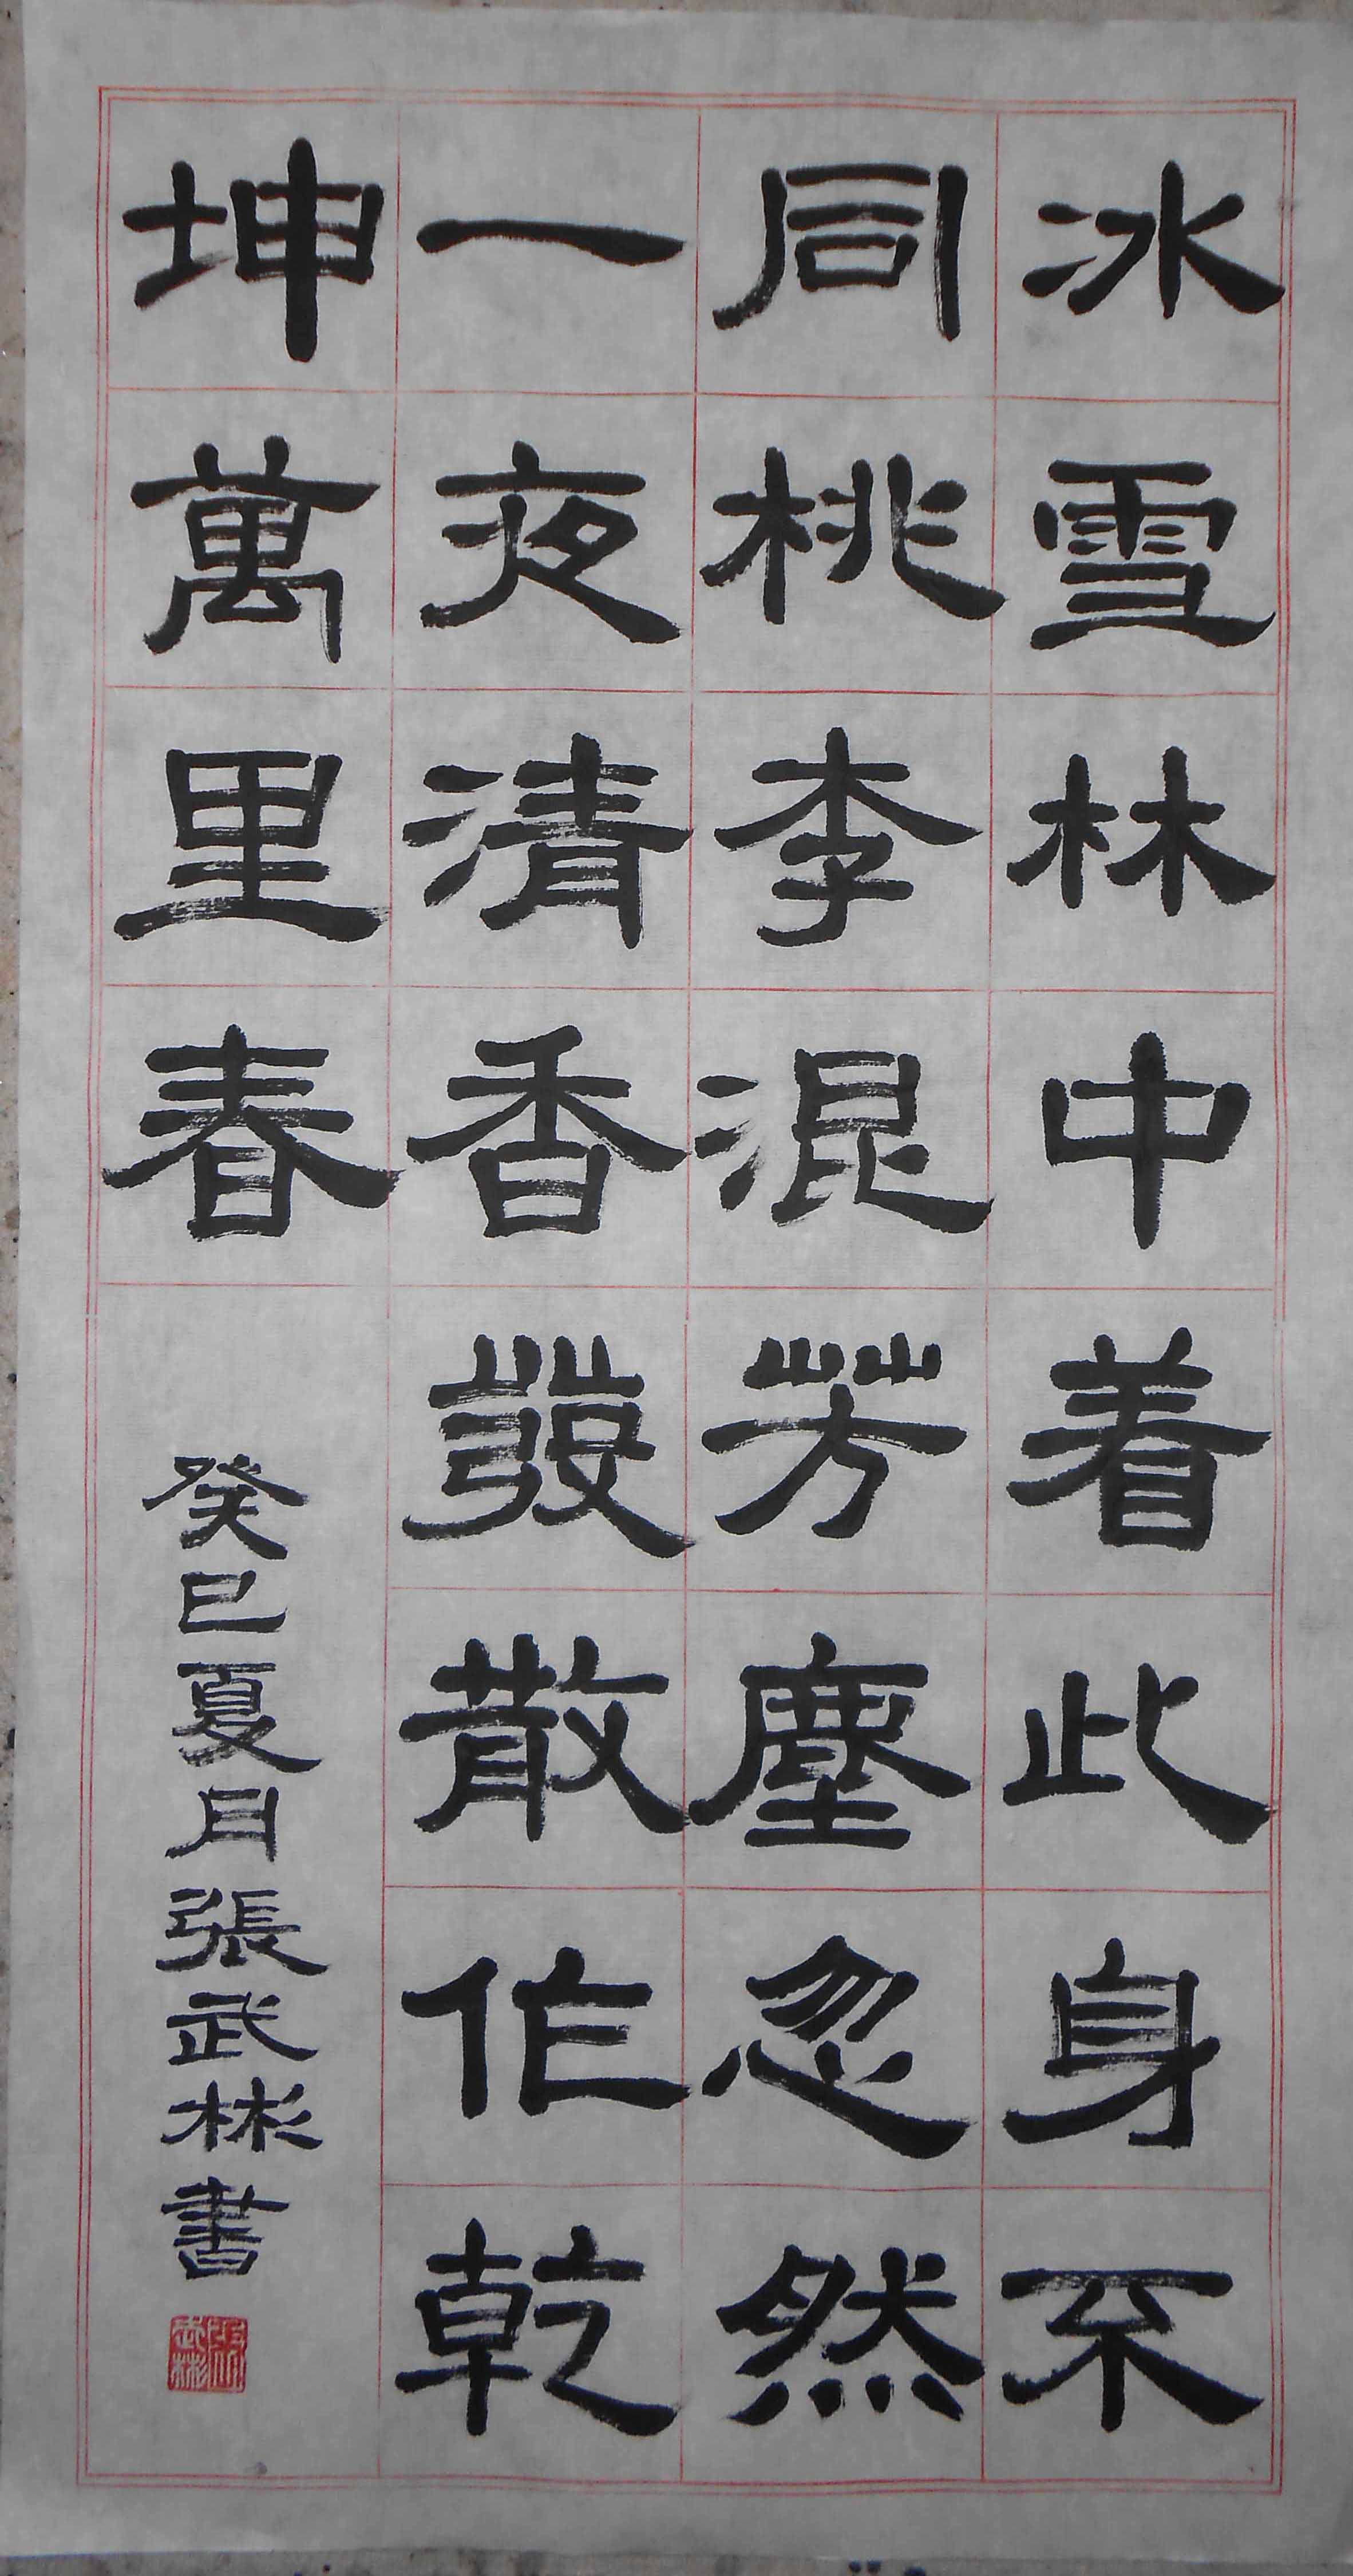 冰雪林中着此身不
同桃李混芳塵忽然
一夜清香發散作乾
坤萬里春
癸巳夏月張武彬書